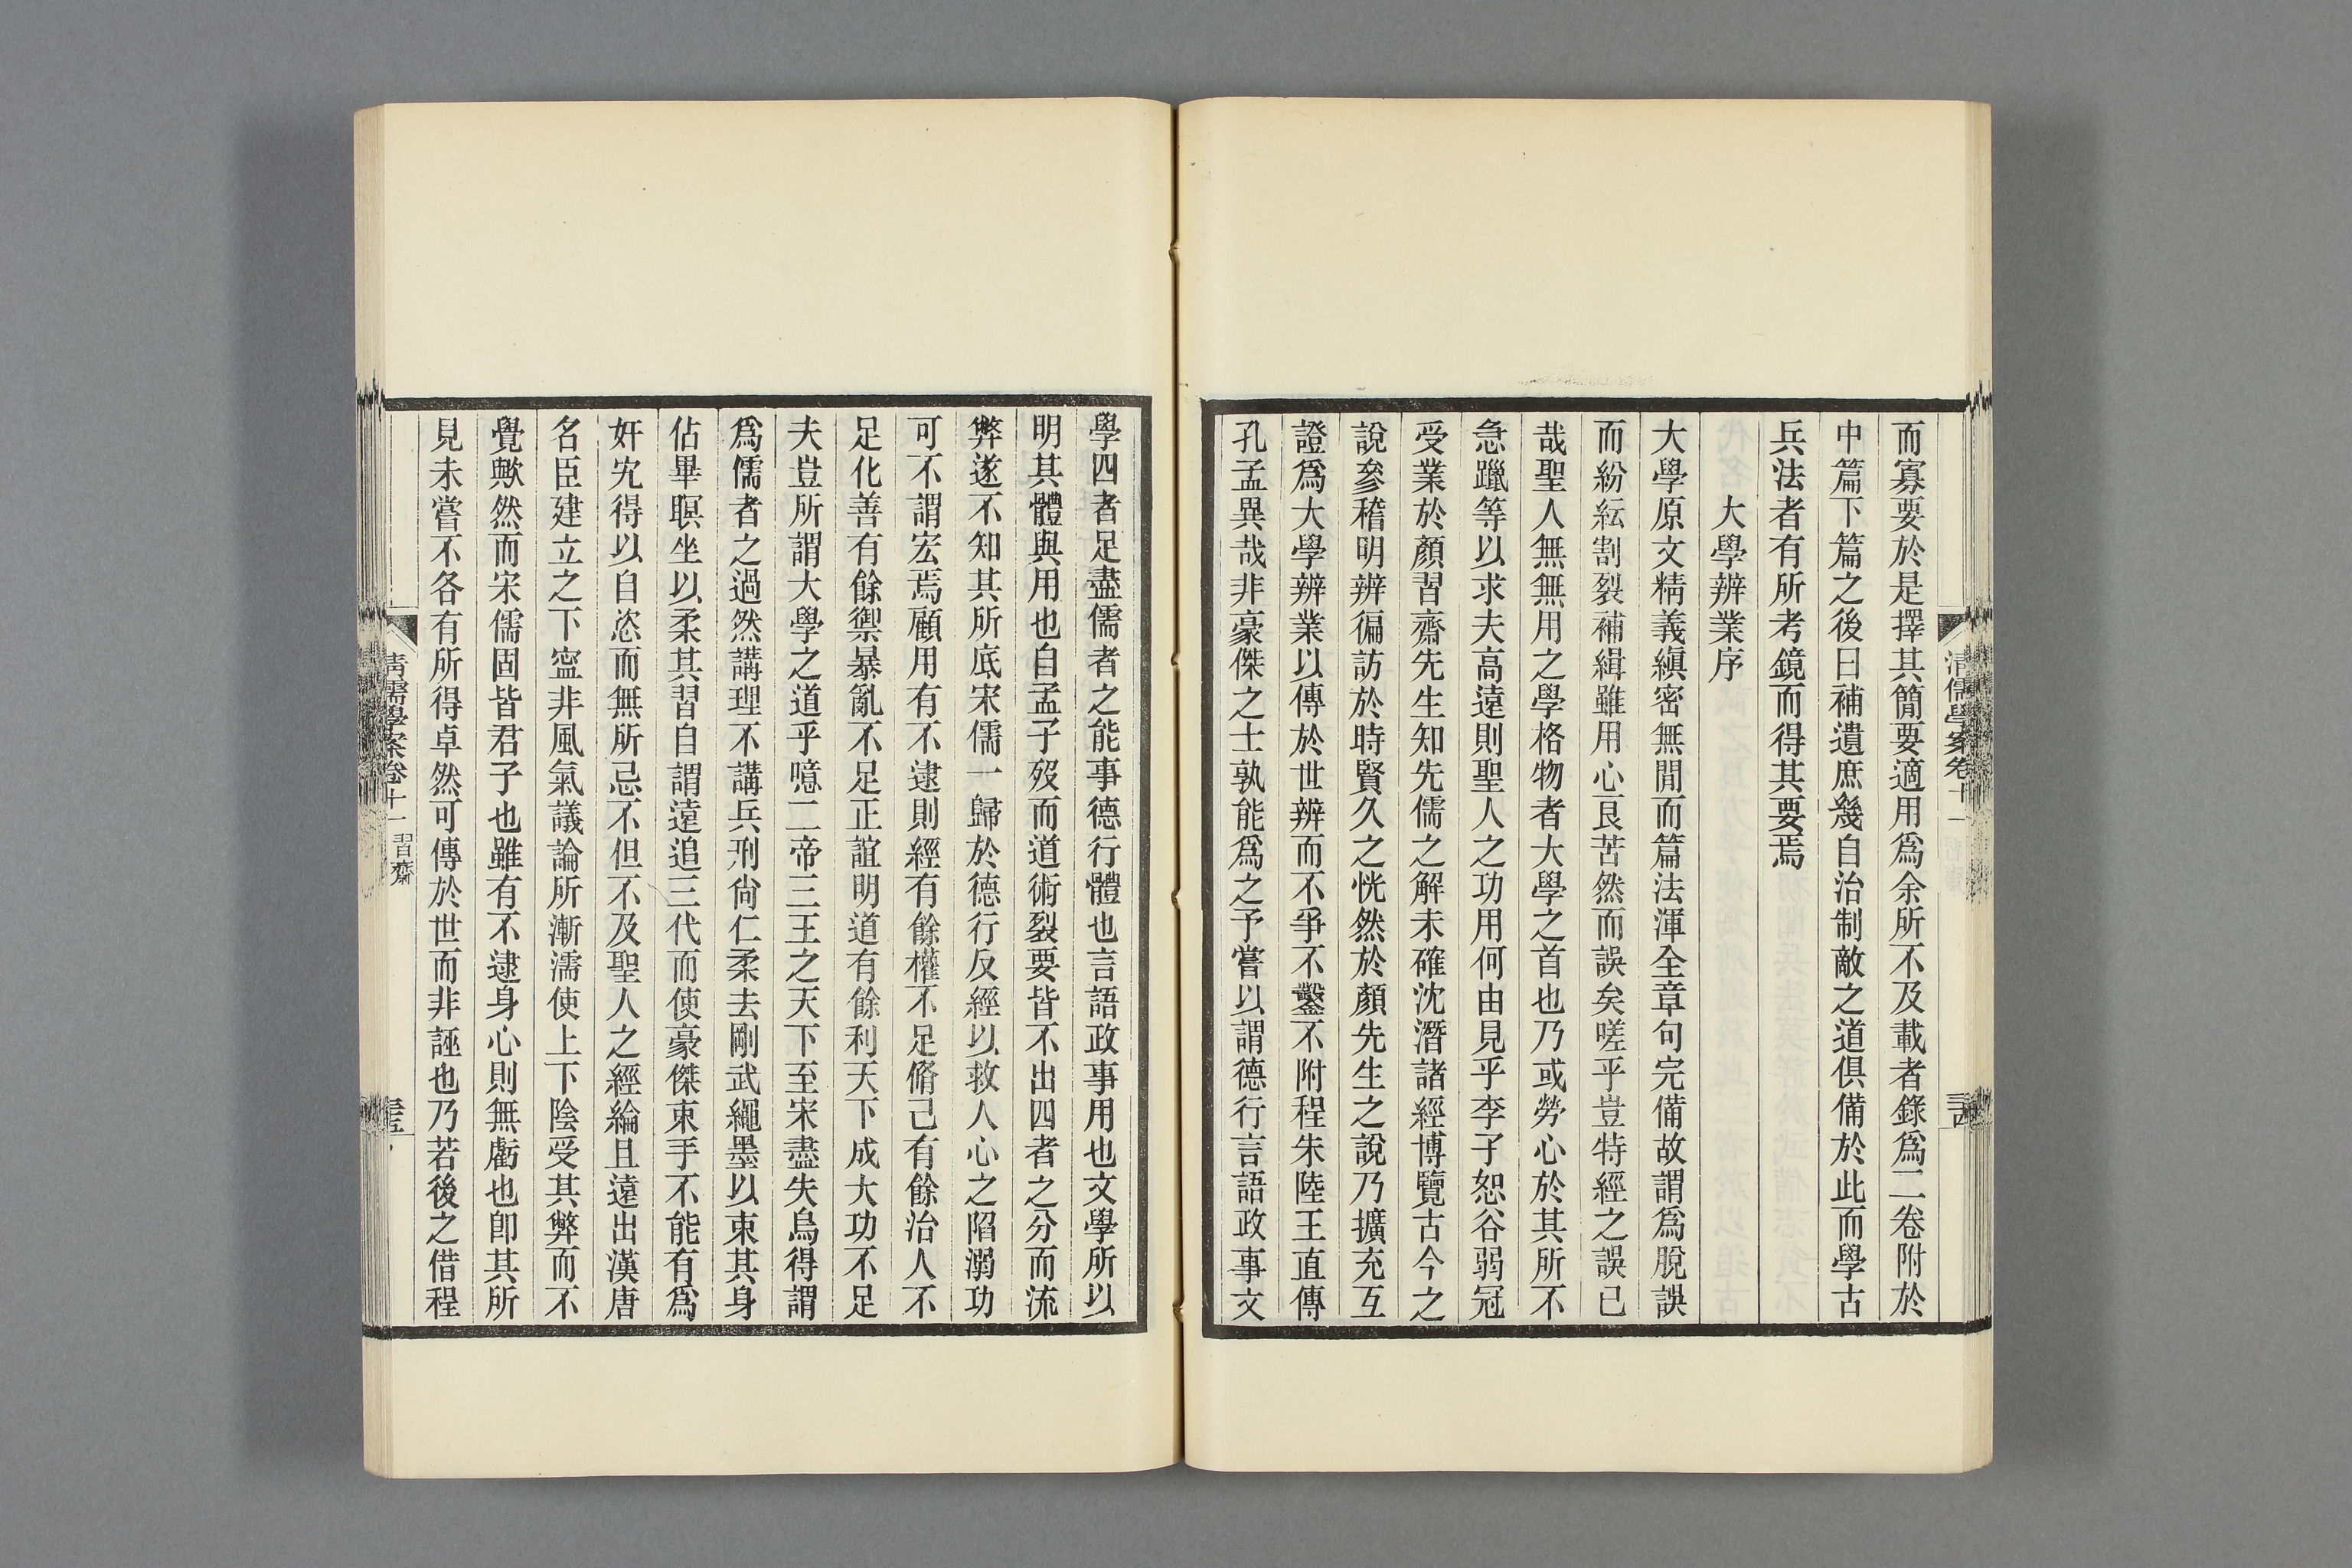 而寡要於是擇其簡要適用爲余所不及載者錄爲二卷附於
中篇下篇之後曰補遺庶幾自治制敵之道俱備於此而學古
兵法者有所考鏡而得其要焉
大學辨業序
大學原文精義縝密無閒而篇法渾全章句完備故謂爲脫誤
而紛紜割裂補緝雖用心良苦然而誤矣嗟乎豈特經之誤已
哉聖人無無用之學格物者大學之首也乃或勞心於其所不
急躐等以求夫高遠則聖人之功用何由見乎李子恕谷弱冠
受業於顏習齋先生知先儒之解未確沈潛諸經博覽古今之
說參稽明辨徧訪於時賢久之恍然於顏先生之說乃擴充互
證爲大學辨業以傳於世辨而不爭不鑿不附程朱陸王直傳
孔孟異哉非豪傑之士孰能爲之予嘗以謂德行言語政事文
清儒學案卷十一
三四
學四者足盡儒者之能事德行體也言語政事用也文學所以
明其體與用也自孟子歿而道術裂要皆不出四者之分而流
弊遂不知其所底宋儒一歸於德行反經以救人心之陷溺功
可不謂宏焉顧用有不逮則經有餘權不足脩己有餘治人不
足化善有餘禦暴亂不足正誼明道有餘利天下成大功不足
夫豈所謂大學之道乎噫二帝三王之天下至宋盡失烏得謂
爲儒者之過然講理不講兵刑尙仁柔去剛武繩墨以束其身
佔畢瞑坐以柔其習自謂遠追三代而使豪傑束手不能有爲
奸宄得以自恣而無所忌不但不及聖人之經綸且遠出漢唐
名臣建立之下寍非風氣議論所漸濡使上下陰受其弊而不
覺歟然而宋儒固皆君子也雖有不逮身心則無虧也卽其所
見未嘗不各有所得卓然可傳於世而非誣也乃若後之借程
清儒學案卷十一 習齋
三五